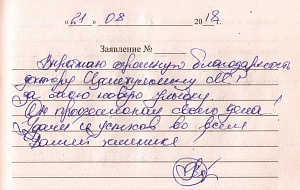 «21» 08 2018г.
Заявление №
Выражаю огромную благодарность
доктору
за мою новую улыбку
Он профессионал своего дела!
Удачи и успехов во всем
Вашей клинике!